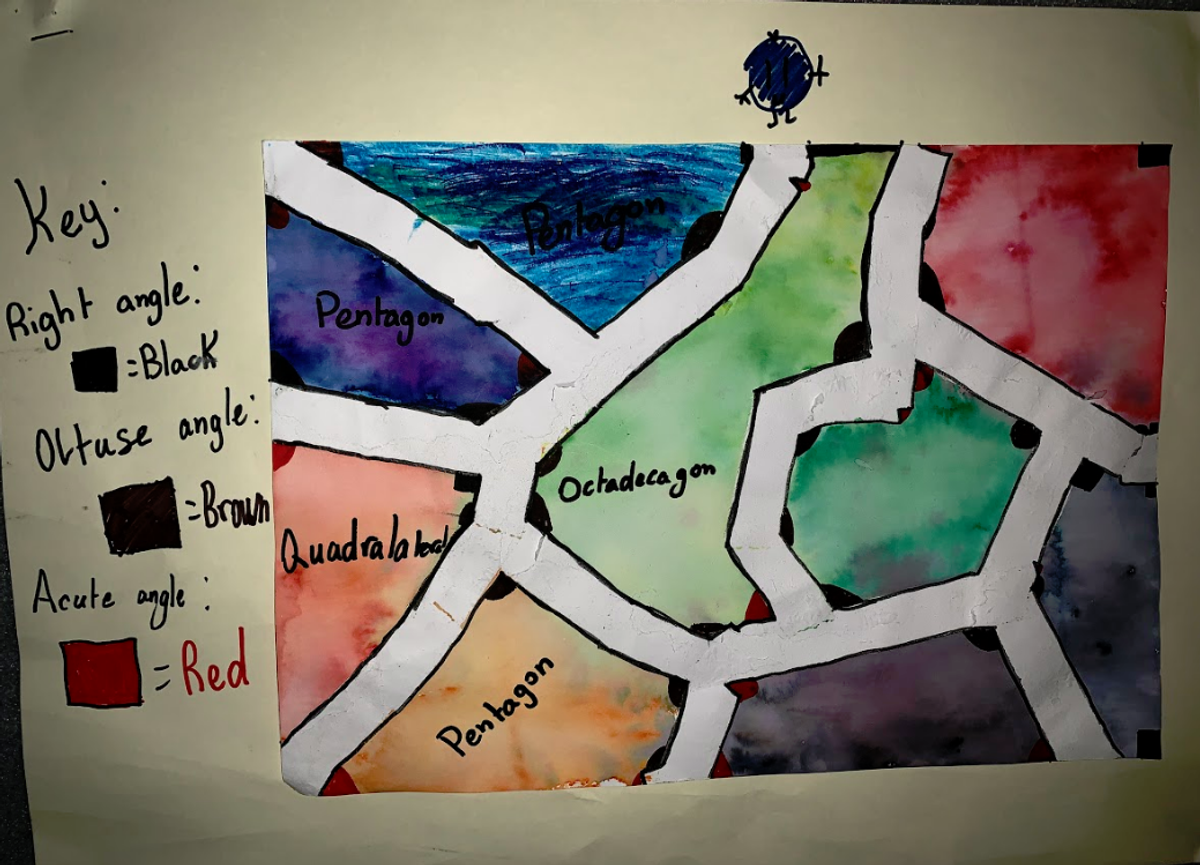 Key:
Right angle:
=Black
Obtuse angle:
=Brown
Acute angle:
=Red
Pentagon
Pentagon
Octadecagon
Quadralateral
Pentagon